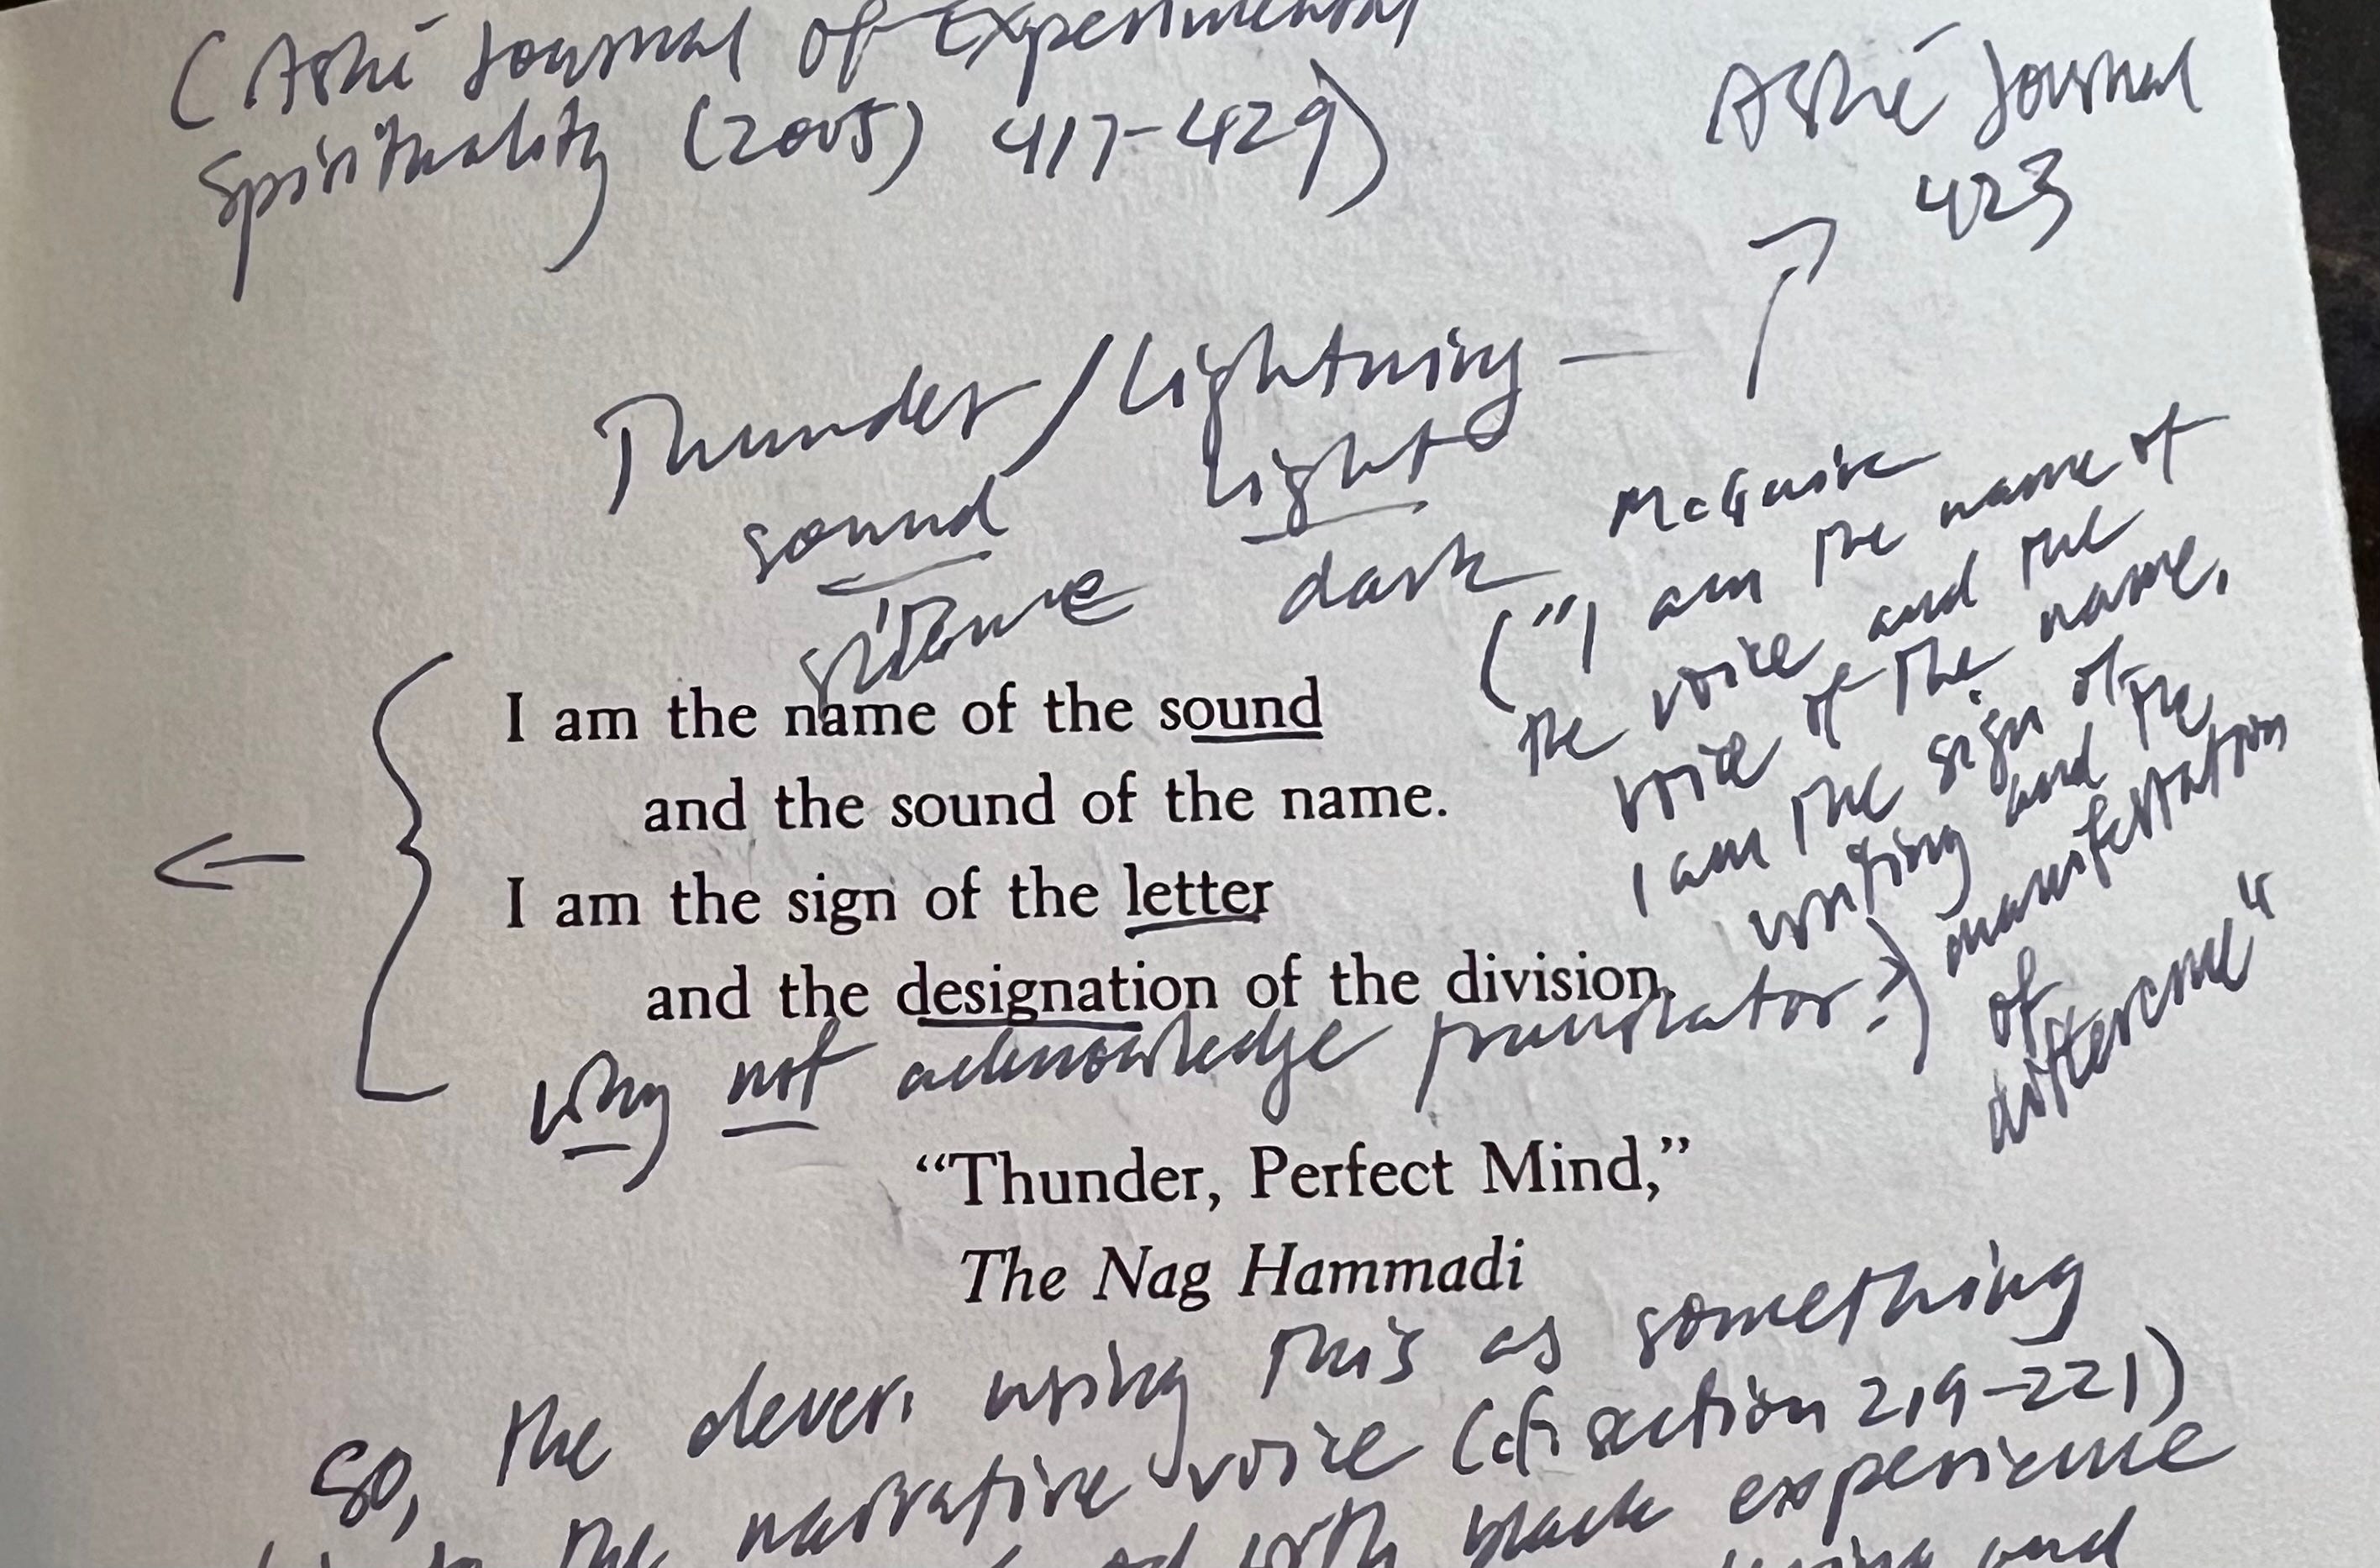 (Ashé Journal of Experimental
Spirituality (2005) 417-429)
Ashé Journal
423
Thunder / Lightning —
sound light
silence dark
McGuire
("I am the name of
the voice and the
voice of the name.
I am the sign of the
writing and the
manifestation
of
difference"
I am the name of the sound
and the sound of the name.
I am the sign of the letter
and the designation of the division.
Why not acknowledge translator?)
“Thunder, Perfect Mind,”
The Nag Hammadi
So, the clever, using this as something
the narrative voice (cf. section 219-221)
with black experience
and